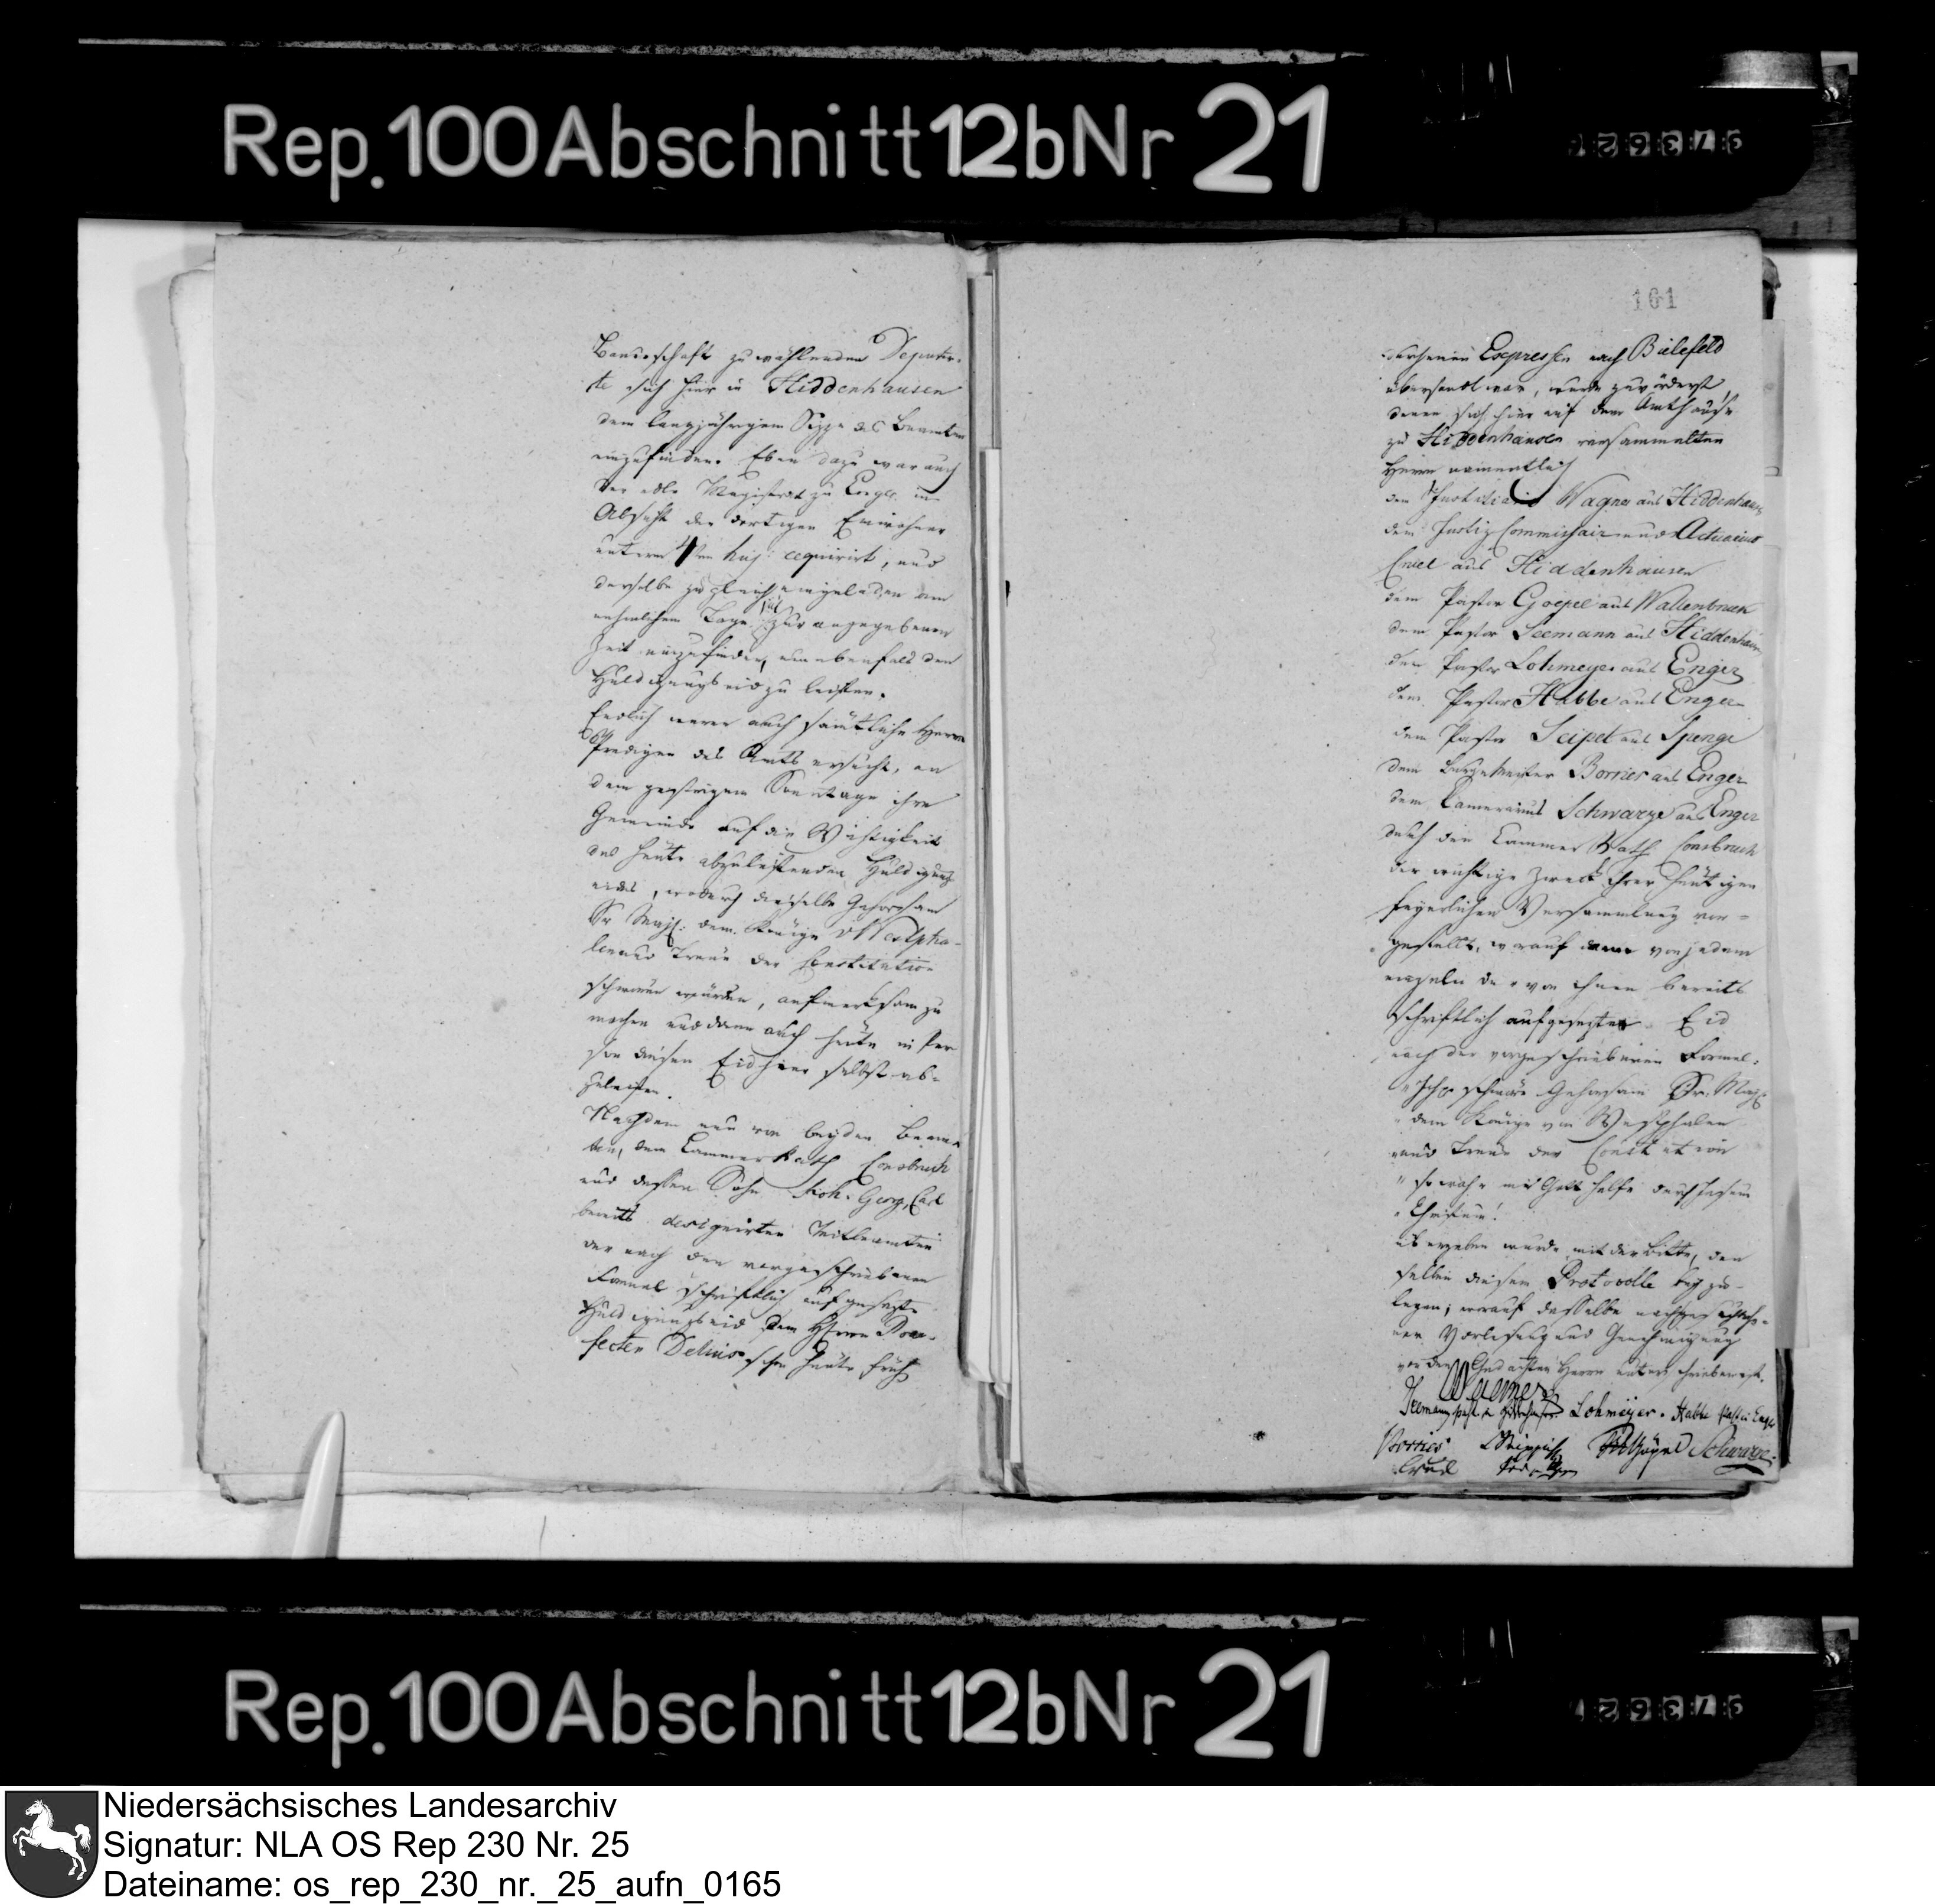 Rep. 100 Abschnitt 12b Nr 21
Bauerschaft zu wählenden Deputir-
te sich hier in Hiddenhausen
dem langjährigen Sitze des Beamten
einzufinden. Eben dazu war auch
der edle Magistrat zu Enger in
Absicht der dortigen Einwohner
unterm huj: requirirt, und
derselbe zugleich eingeladen am
nehmlichen Tage zur angegebenen
Zeit einzufinden, um ebenfals den
Huldigungseid zu leisten.
Endlich waren auch sämtliche Herrn
Prediger des Amts ersucht, an
dem gestrigen Sonntage ihre
Gemeinde auf die Wichtigkeit
des heute abzuleistenden Huldigungs
eides, wodurch dieselbe Gehorsam
Sr Maj: dem Könige v Westpha-
len und Treue der Constitution
schwören würden, aufmerksam zu
machen und dann auch heute in Per
son diesen Eid hier selbst ab-
zuleisten.
Nachdem nun von beyden Beam-
ten, dem Cammer Rath Consbruch
und dessen Sohn Joh. Georg, Carl
bereits designirten Mitbeamten
der nach den vorgeschriebenen
Formel schriftlich aufgesezte
Huldigungseid dem Herrn Prae-
fecten Delius schon heute früh
101
durch einen Expressen nach Bielefeld
übersandt war, wurde zuvörderst
denen sich hier auf dem Amthause
zu Hiddenhausen versammelten
Herrn namentlich
dem Justitiario Wagner aus Hiddenhausen
dem Justiz Commissair und Actuarius
aus Hiddenhausen
dem Pastor Goepel aus Wallenbruck
dem Pastor Seemann aus Hiddenhausen
dem Pastor Lohmeyer aus Enger
dem Pastor Habbe aus Enger
dem Pastor Seipel aus Spenge
dem Burgemeister Borries aus Enger
dem Camerarius Schwarze aus Enger
durch den Cammer Rath Consbruch
der wichtige Zweck ihrer heutigen
feyerlichen Versammlung vor-
gestellt, worauf dann von jedem
einzeln der von ihnen bereits
schriftlich aufgesezten Eid
nach der vorgeschriebenen Formel:
"Ich schwöre Gehorsam Sr. Maj:
"dem Könige von Westphalen
"und Treue der Constitution
"so wahr mir Gott helfe durch Jesum
"Christum!
übergeben wurde mit der Bitte, den
selben diesem Protocolle bey zu-
legen; worauf dasselbe nach geschehe-
ner Vorlesung und Genehmigung
von den Gedachten Herrn unterschrieben ist.
Wagner
Seemann past. in Hiddenhausen Lohmeyer. Habbe Past in Enger
Borries Goepel Schwarze
Rep. 100 Abschnitt 12b Nr 21
Niedersächsisches Landesarchiv
Signatur: NLA OS Rep 230 Nr. 25
Dateiname: os_rep_230_nr._25_aufn_0165